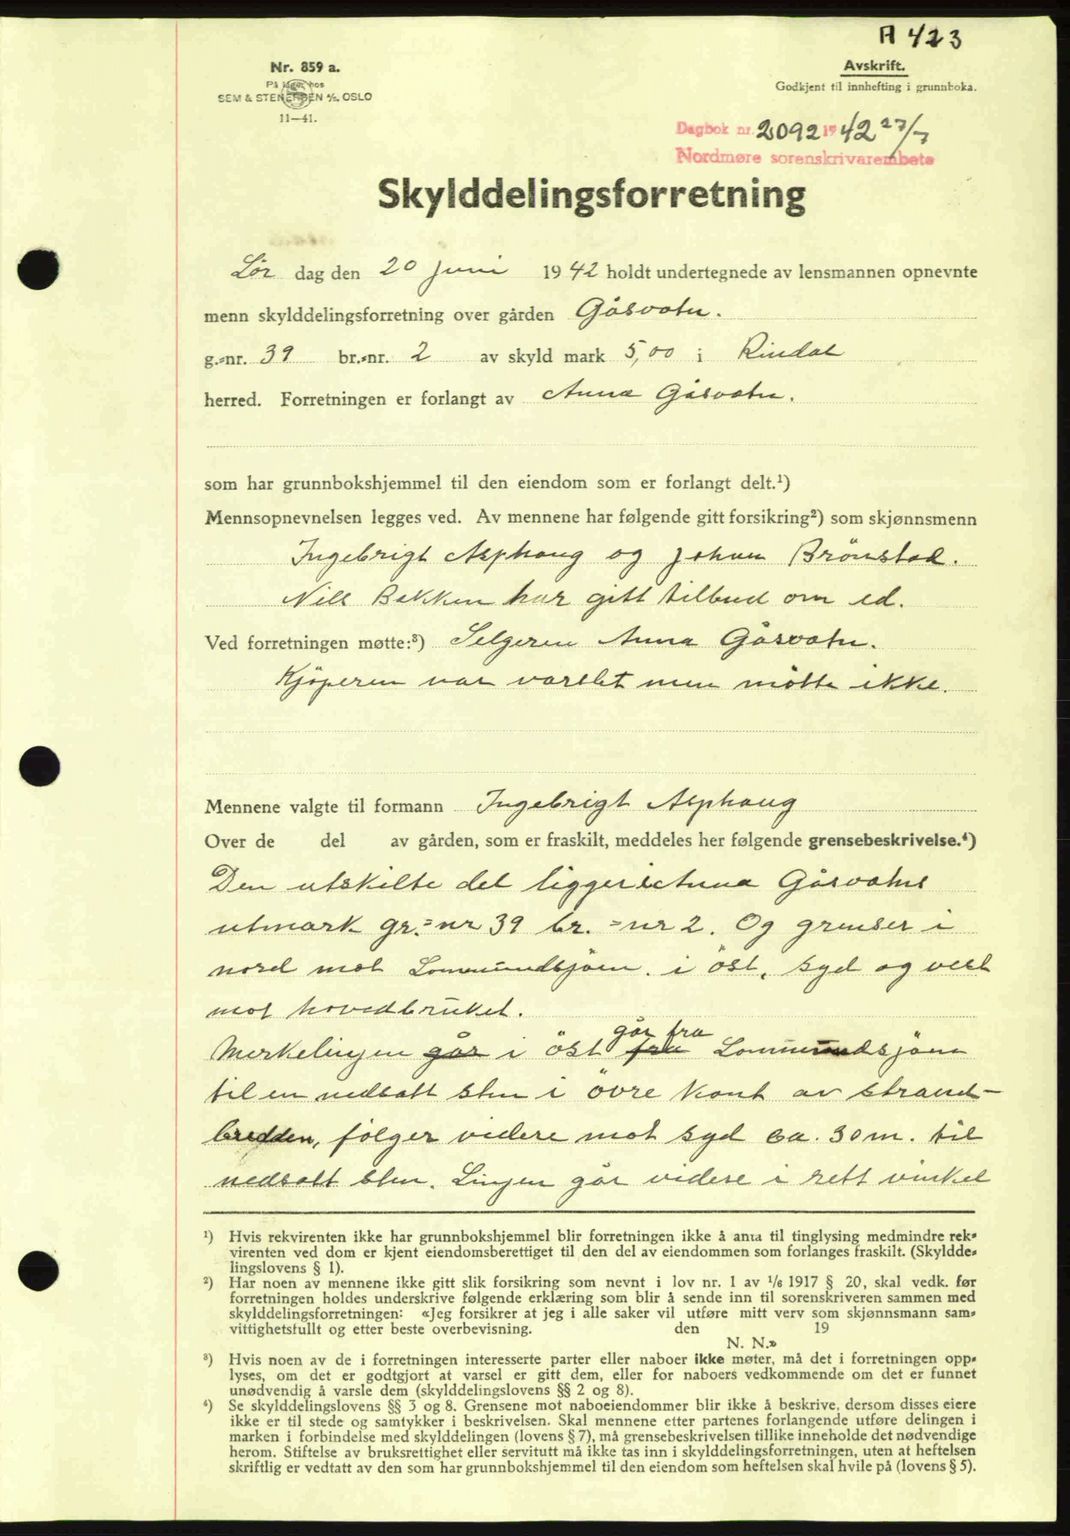 A 423
Nr. 859 a.
På lager hos
SEM & STENERSEN A/S. OSLO
11—41.
Avskrift.
Godkjent til innhefting i grunnboka.
Dagbok nr. 2092 1942 27/7
Nordmøre sorenskrivarembete
Skylddelingsforretning
Lør dag den 20 juni 1942 holdt undertegnede av lensmannen opnevnte
menn skylddelingsforretning over gården Gåsvatn.
g.-nr. 39 br.-nr. 2 av skyld mark 5,00 i Rindal
herred. Forretningen er forlangt av Anna Gåsvatn.
som har grunnbokshjemmel til den eiendom som er forlangt delt.¹)
Mennsopnevnelsen legges ved. Av mennene har følgende gitt forsikring²) som skjønnsmenn
Ingebrigt Asphaug og Johan Brönstad.
Nils Bakken har gitt tilbud om ed.
Ved forretningen møtte:³) Selgeren Anna Gåsvatn.
Kjöperen var varslet men mötte ikke.
Mennene valgte til formann Ingebrigt Asphaug
Over de del av gården, som er fraskilt, meddeles her følgende grensebeskrivelse.⁴)
Den utskilte del ligger i Anna Gåsvatns
utmark gr.=nr 39 br.=nr 2. Og grenser i
nord mot Lommundsjöen. i öst, syd og vest
mot hovedbruket.
går fra
Merkelinjen går i öst fra Lommundsjöen
til en nedsatt sten i övre kant av strand-
bredden, fölger videre mot syd ca. 30 m. til
nedsatt sten. Linjen går videre i rett vinkel
¹) Hvis rekvirenten ikke har grunnbokshjemmel blir forretningen ikke å anta til tinglysing medmindre rek-
virenten ved dom er kjent eiendomsberettiget til den del av eiendommen som forlanges fraskilt. (Skyldde-
lingslovens § 1).
²) Har noen av mennene ikke gitt slik forsikring som nevnt i lov nr. 1 av 1/6 1917 § 20, skal vedk. før
forretningen holdes underskrive følgende erklæring som blir å sende inn til sorenskriveren sammen med
skylddelingsforretningen: «Jeg forsikrer at jeg i alle saker vil utføre mitt verv som skjønnsmann sam-
vittighetsfullt og etter beste overbevisning. den 19
N. N.»
³) Hvis noen av de i forretningen interesserte parter eller naboer ikke møter, må det i forretningen opp-
lyses, om det er godtgjort at varsel er gitt dem, eller for naboers vedkommende om det er funnet
unødvendig å varsle dem (skylddelingslovens §§ 2 og 8).
⁴) Se skylddelingslovens §§ 3 og 8. Grensene mot naboeiendommer blir ikke å beskrive, dersom disses eiere
ikke er til stede og samtykker i beskrivelsen. Skal mennene etter partenes forlangende utføre delingen i
marken i forbindelse med skylddelingen (lovens § 7), må grensebeskrivelsen tillike inneholde det nødvendige
herom. Stiftelse av bruksrettighet eller servitutt må ikke tas inn i skylddelingsforretningen, uten at heftelsen
skriftlig er vedtatt av den som har grunnbokshjemmel til den eiendom som heftelsen skal hvile på (lovens § 5).